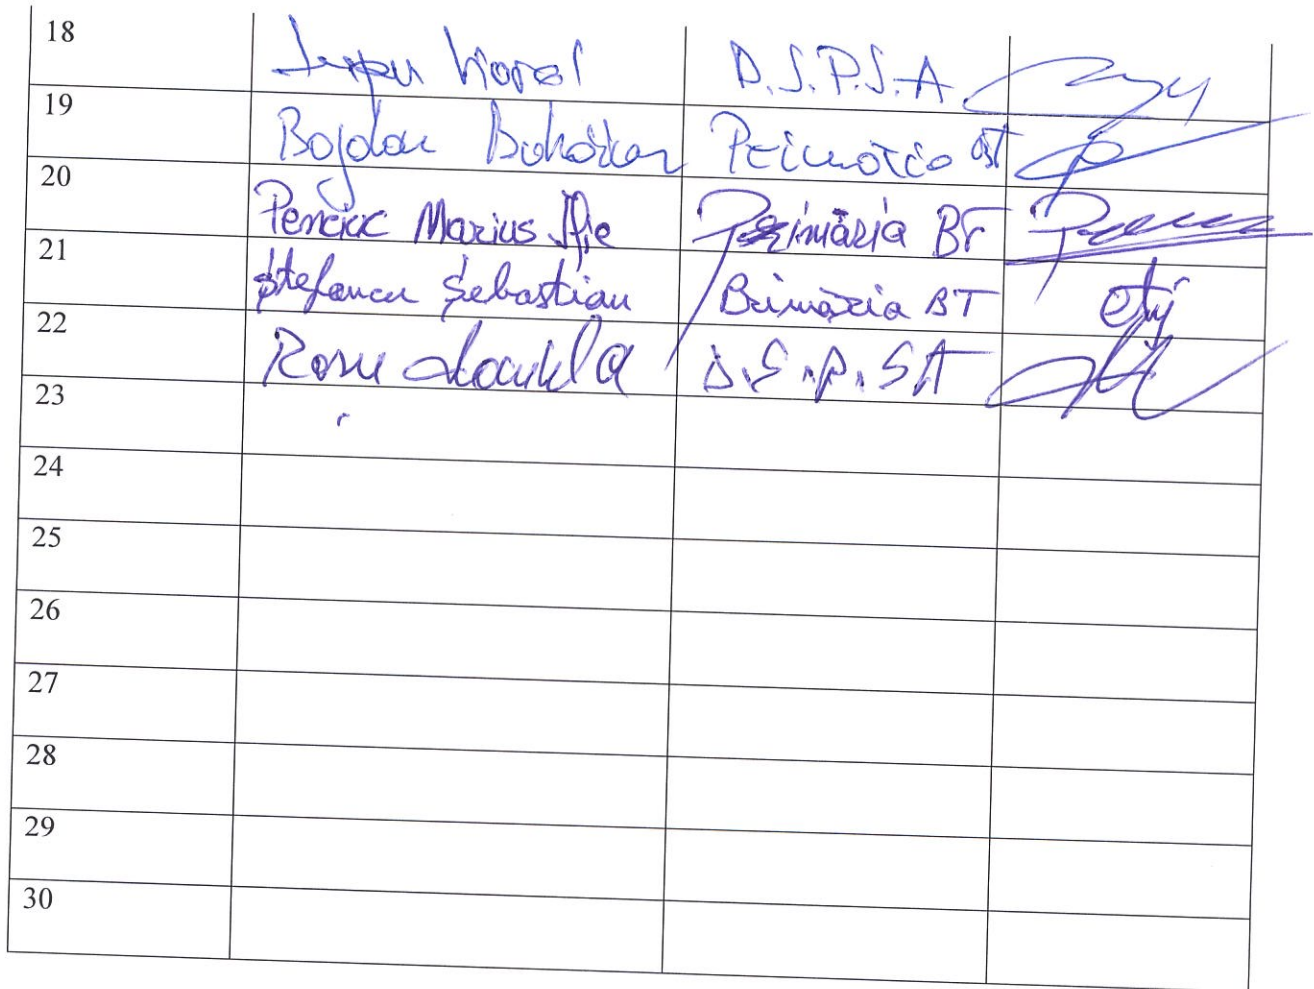 18 Viorel D.S.P.S.A.
19 Bogdan Primăria BT
20 Penciuc Marius Ilie Primăria BT
21 Ștefancu Sebastian Primăria BT
22 Roșu D.S.P.SA
23
24
25
26
27
28
29
30